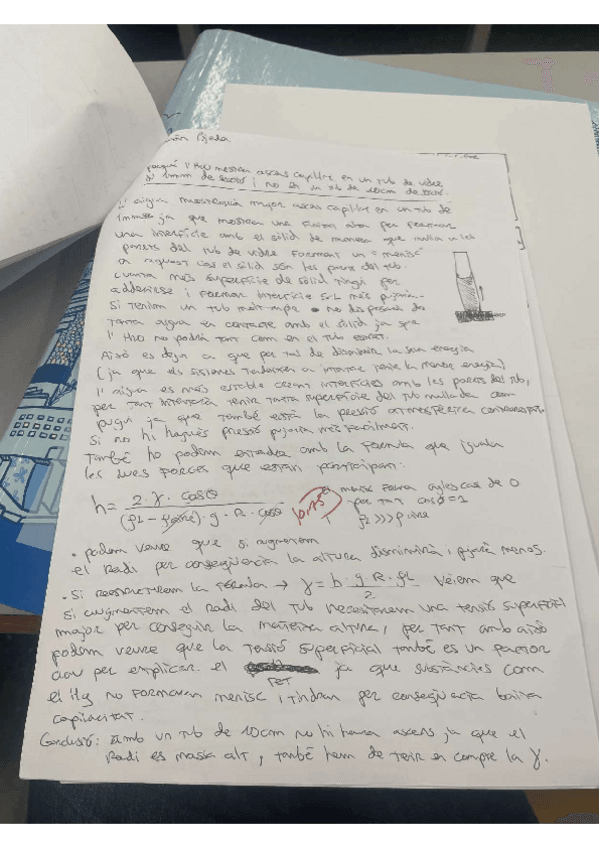 Pijada
perquè l'H2O mostra ascens capil·lar en un tub de vidre
de 1mm de i no en un tub de 10cm de
L'aigua mostraria major ascens capil·lar en un tub de
1mm ja que mostren una alta per formar
una interfície amb el sòlid de manera que mulla a les
parets del tub de vidre formant un "menisc"
en aquest cas el sòlid són les parets del tub.
Quanta més superfície de sòlid tingui per
adherirse i formar interfície S-L més pujarà.
Si tenim un tub molt ample no disposarà de
tanta aigua en contacte amb el sòlid ja que
l'H2O no podrà tant com en el tub estret.
Això es degut a que per tal de disminuir la seva energia
(ja que els sistemes tendeixen a intentar tenir la menor energia)
l'aigua es més estable creant interfícies amb les parets del tub,
per tant intentarà tenir tanta superfície del tub mullada com
pugui ja que també està la pressió atmosfèrica
Si no hi hagués pressió pujaria més facilment.
També ho podem entendre amb la formula que iguala
les dues forces que estan participant:
el menisc forma angles casi de 0
h = 2·γ·cosθ / (ρL - ρaire)·g·R·cosθ
0,75
per tant cosθ = 1
ρL >>> ρaire
• podem veure que si augmentem
el Radi per conseqüència la altura disminuirà, pujarà menys.
• Si reestructurem la fórmula → γ = h·g·R·ρL / 2 veiem que
si augmentem el Radi del tub necessitarem una tensió superficial
major per conseguir la mateixa altura, per tant amb això
podem veure que la tensió superficial també es un factor
clau per explicar el fet ja que substàncies com
el Hg no formaran menisc i tindran per conseqüència baixa
capilaritat.
Conclusió: Amb un tub de 10cm no hi haurà ascens ja que el
Radi es massa alt, també hem de tenir en compte la γ.